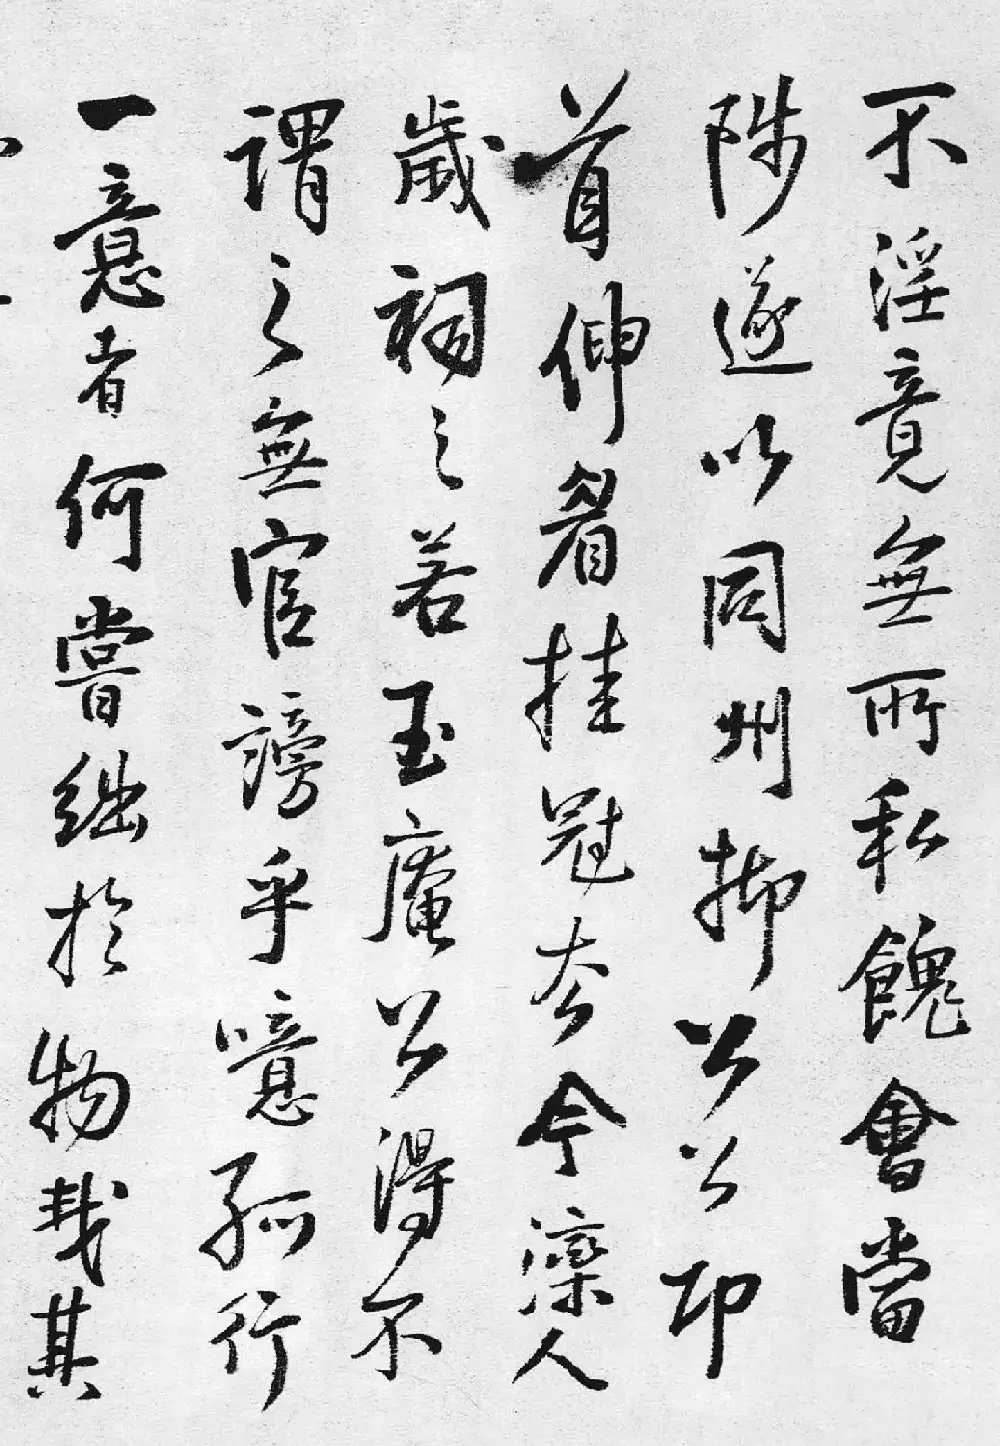 不淫竟無所私餽會當
陟遂以同州抑公公印
首伸眉挂冠去今灤人
歲祠之若玉庵公得不
謂之無官謗乎噫孤行
一意者何嘗絀於物哉其